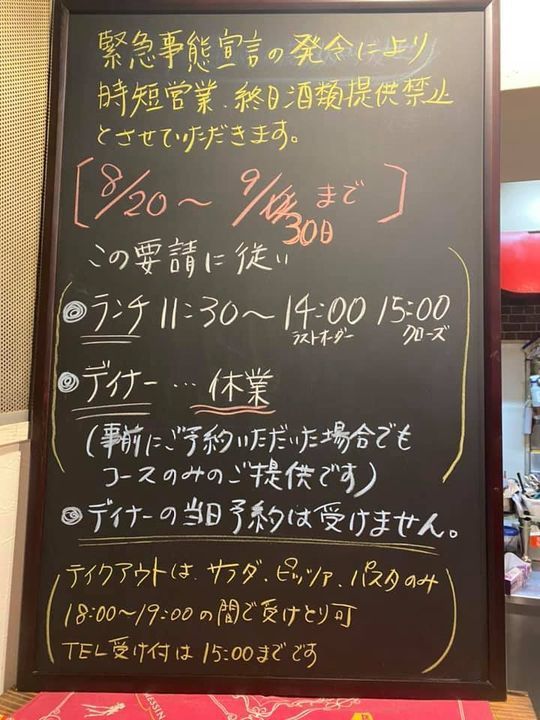 緊急事態宣言の発令により
時短営業、終日酒類提供禁止
とさせていただきます。
[8/20〜9/30日まで]
この要請に従い
◎ランチ 11:30〜14:00 15:00
ラストオーダー クローズ
◎ディナー…休業
(事前にご予約いただいた場合でも
コースのみのご提供です)
◎ディナーの当日予約は受けません。
テイクアウトは、サラダ、ピッツァ、パスタのみ
18:00〜19:00の間で受けとり可
TEL受け付は15:00までです